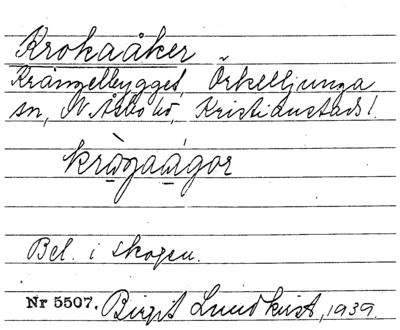 Krokaåker
Krångelbygget, Örkelljunga
sn, N. Åsbo hd, Kristianstads l.
kròga ágor
Bel. i skogen.
Nr 5507. Birgit Lundkvist, 1939.